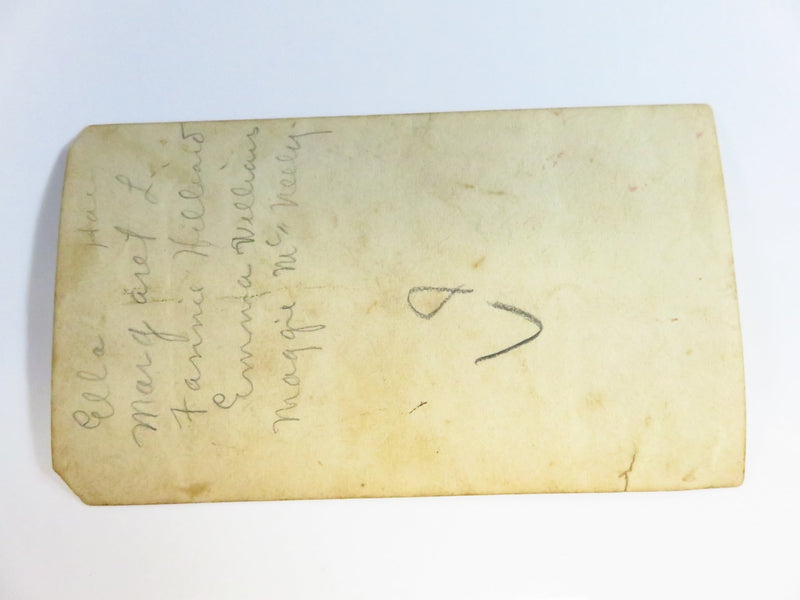 Ella
Margaret L.
Fannie Hilliard
Emma Williams
Maggie Mc Neely